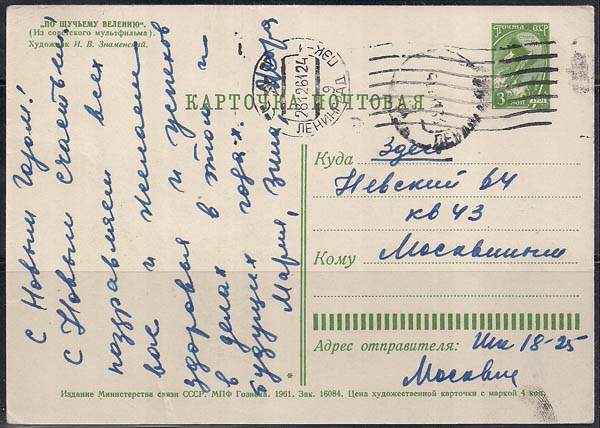 „ПО ЩУЧЬЕМУ ВЕЛЕНИЮ“.
(Из советского мультфильма).
Художник И. В. Знаменский.
ПОЧТА СССР
3 КОП
КАРТОЧКА ПОЧТОВАЯ
ЛЕНИНГРАД
28126124
С Новым годом!
С Новым счастьем!
поздравляем всех
вас и желаем
здоровья и успехов
в делах в этом и
будущих годах.
Мария, Зина,
Куда Здесь
Невский 64
кв 43
Кому Москвиным
Адрес отправителя: 18-25
Москвины
Издание Министерства связи СССР. МПФ Гознака. 1961. Зак. 16084. Цена художественной карточки с маркой 4 коп.